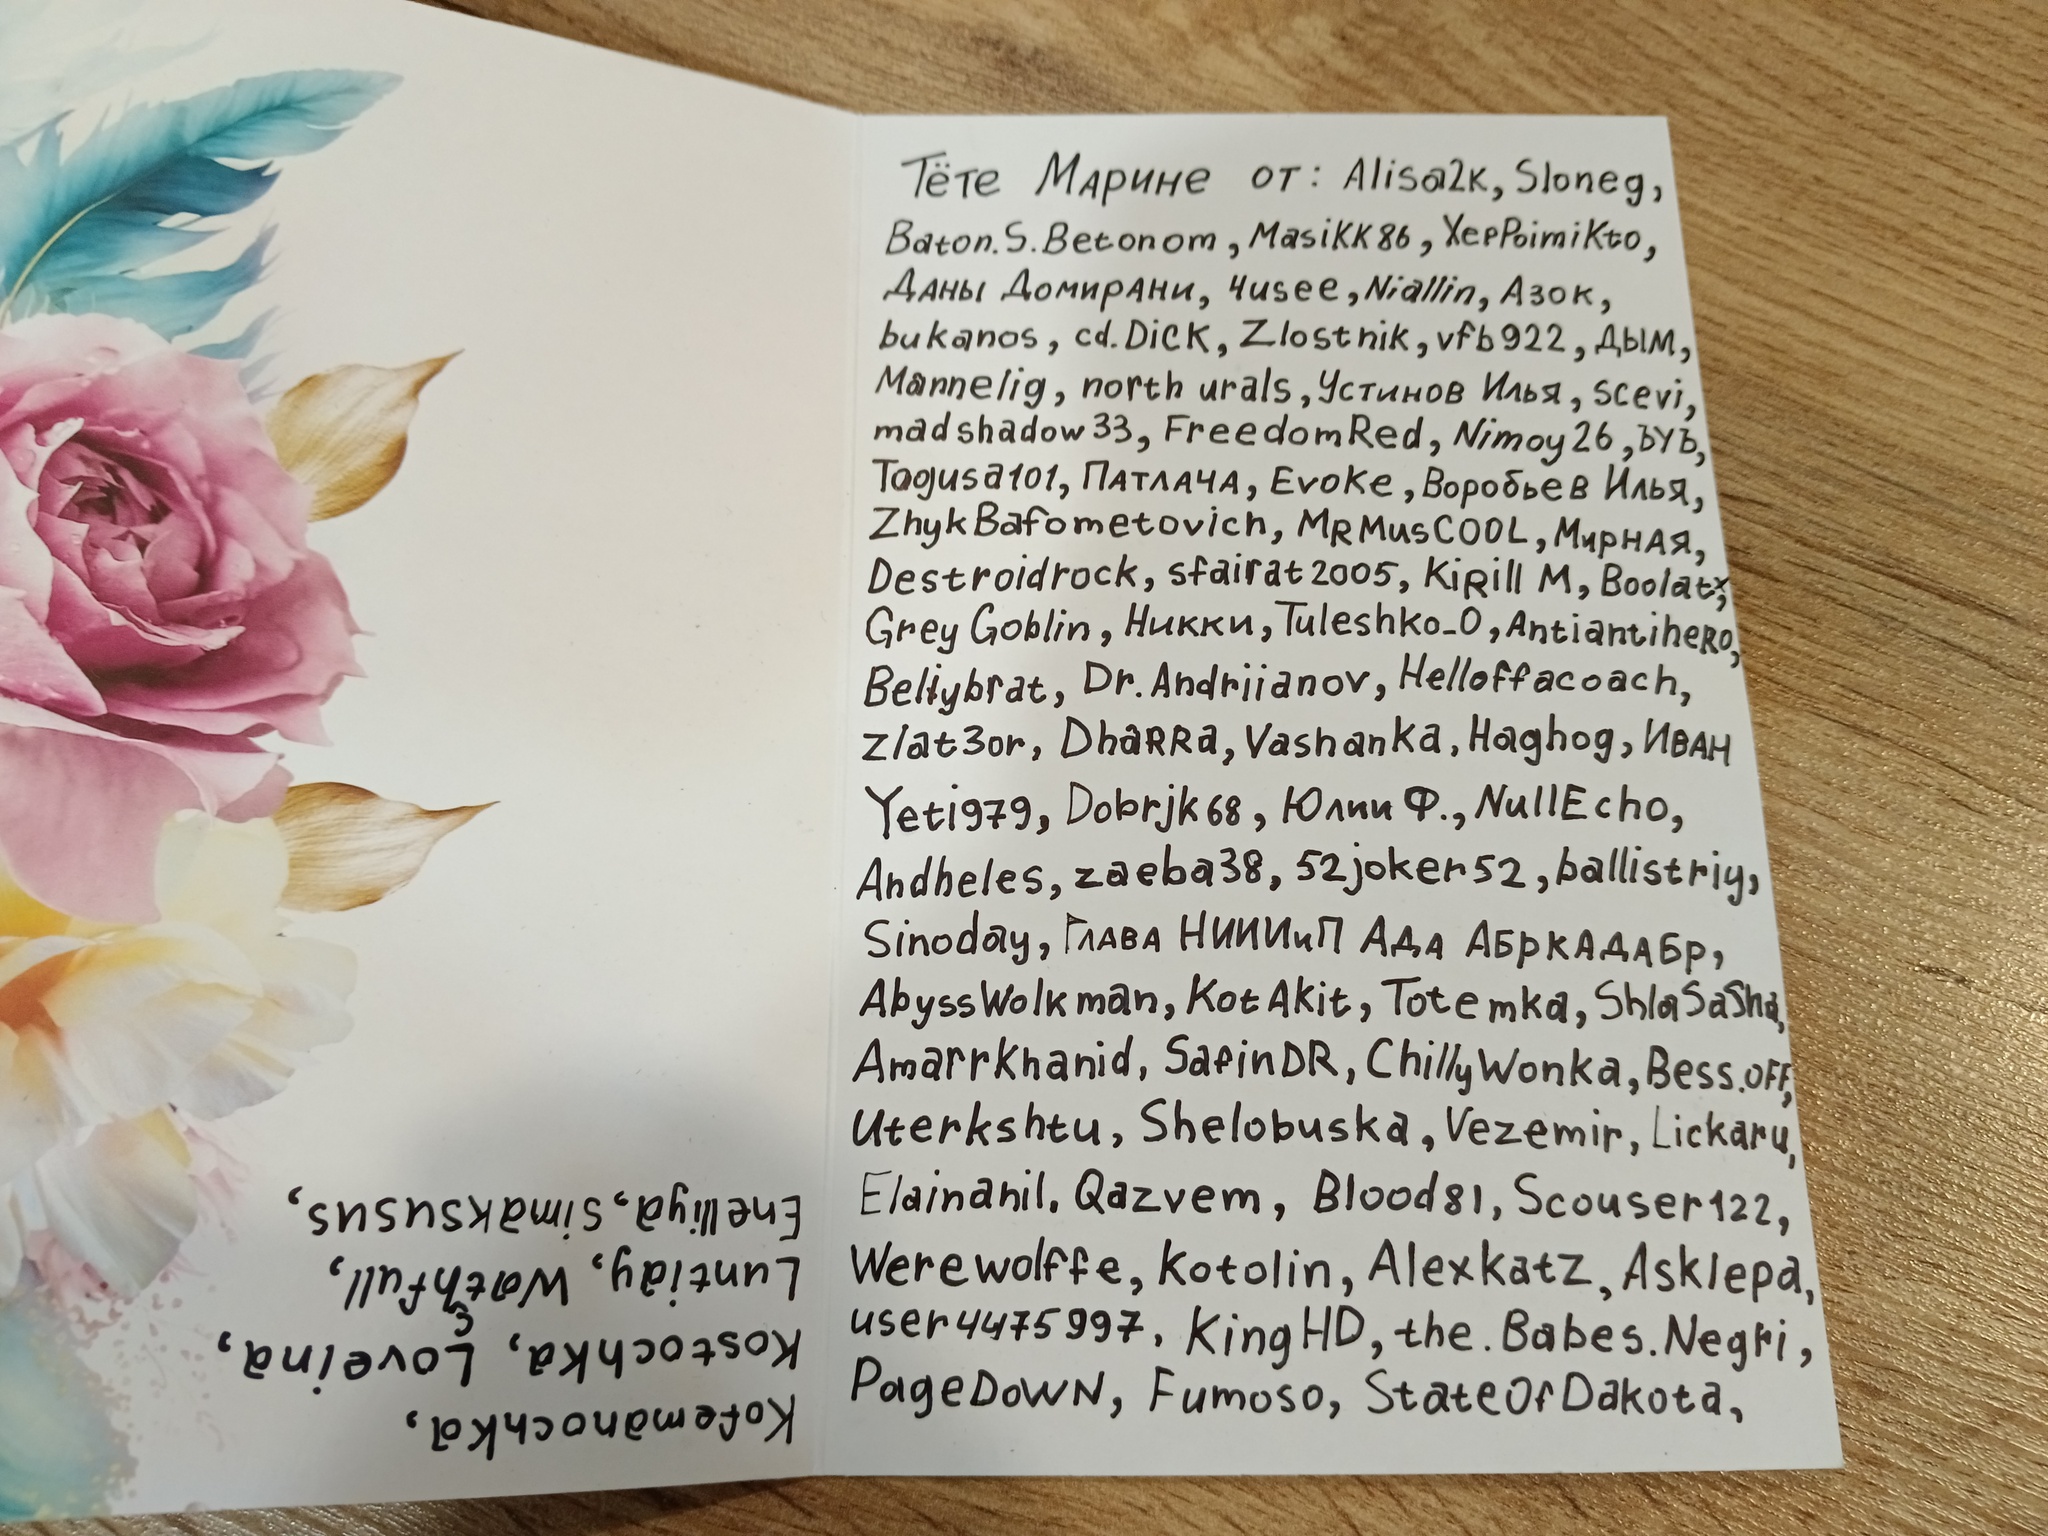 Тёте Марине от: Alisa2k, Sloneg,
Baton.S.Betonom, MasiKK86, ХерPoimiKto,
Даны Домирани, 4usee, Niallin, Азок,
bukanos, cd.DiCK, Zlostnik, vfb922, Дым,
Mannelig, north urals, Устинов Илья, scevi,
madshadow33, FreedomRed, Nimoy26, ЪУЪ,
Tagusa101, Патлача, Evoke, Воробьев Илья,
ZhykBafometovich, MRMusCOOL, Мирная,
Destroidrock, sfairat2005, Kirill M, Boolatx,
Grey Goblin, Никки, Tuleshko_O, Antiantihero,
Bellybrat, Dr.Andriianov, Helloffacoach,
zlat3or, Dharra, Vashanka, Haghog, Иван
Yeti979, Dobrjk68, Юлии Ф., NullEcho,
Andheles, zaeba38, 52joker52, ballistriy,
Sinoday, Глава НИИИиП Ада Абркадабр,
AbyssWolkman, KotAkit, Totemka, ShlaSaSha,
Amarrkhanid, SafinDR, ChillyWonka, Bess.OFF,
Uterkshtu, Shelobuska, Vezemir, Lickaru,
Elainahil. Qazvem, Blood81, Scouser122,
Werewolffe, Kotolin, Alexkatz, Asklepa,
user4475997. KingHD, the.Babes.Negri,
PageDoWN, Fumoso, StateOfDakota,
Kofemanochka,
Kostochka, Loveina,
Luntiay, Watchfull,
Enelliya, Simaksusus,